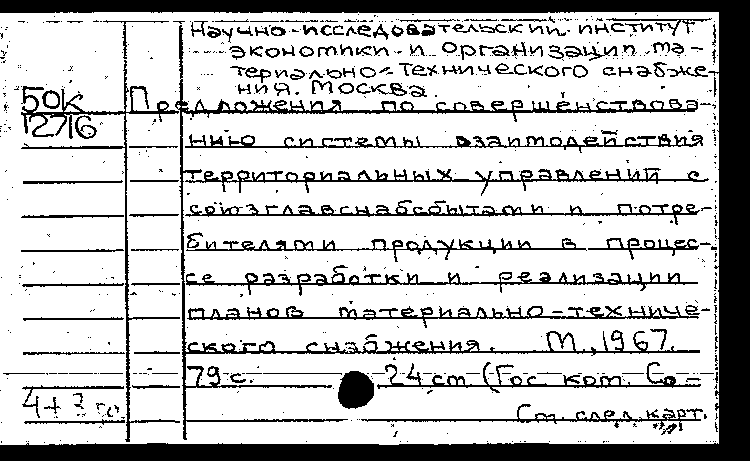 Научно-исследовательский институт
экономики и организации ма-
териально-технического снабже-
ния. Москва.
50к
12716
Предложения по совершенствова-
нию системы взаимодействия
территориальных управлений с
союзглавснабсбытами и потре-
бителями продукции в процес-
се разработки и реализации
планов материально-техниче-
ского снабжения. М., 1967.
79 с. 24 см (Гос. ком. Со-
4+3
См. след. карт.